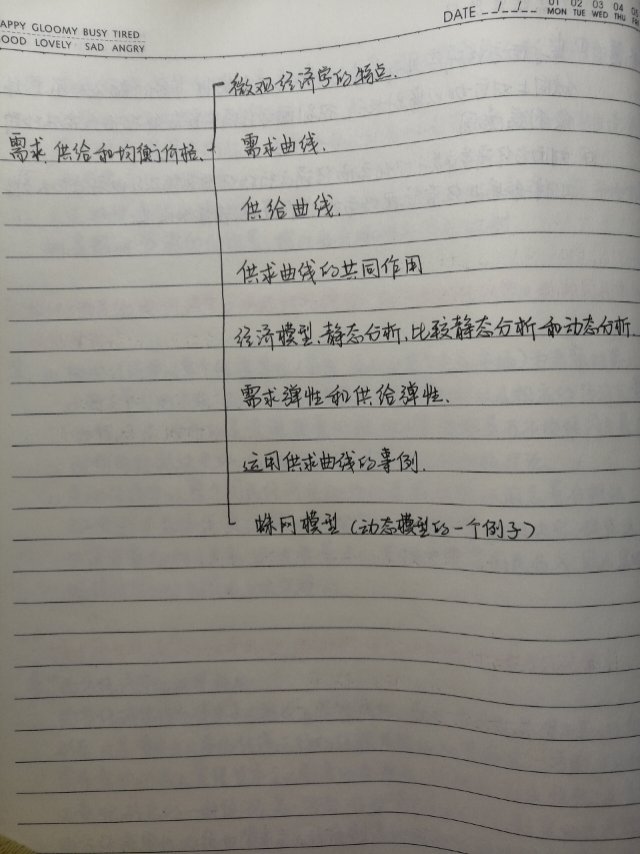 APPY GLOOMY BUSY TIRED
OOD LOVELY SAD ANGRY
DATE _ _/_ _/_ _
01 02 03 04 05
MON TUE WED THU FR
微观经济学的特点.
需求、供给和均衡价格.
需求曲线.
供给曲线.
供求曲线的共同作用
经济模型、静态分析、比较静态分析和动态分析.
需求弹性和供给弹性.
运用供求曲线的事例.
蛛网模型(动态模型的一个例子)